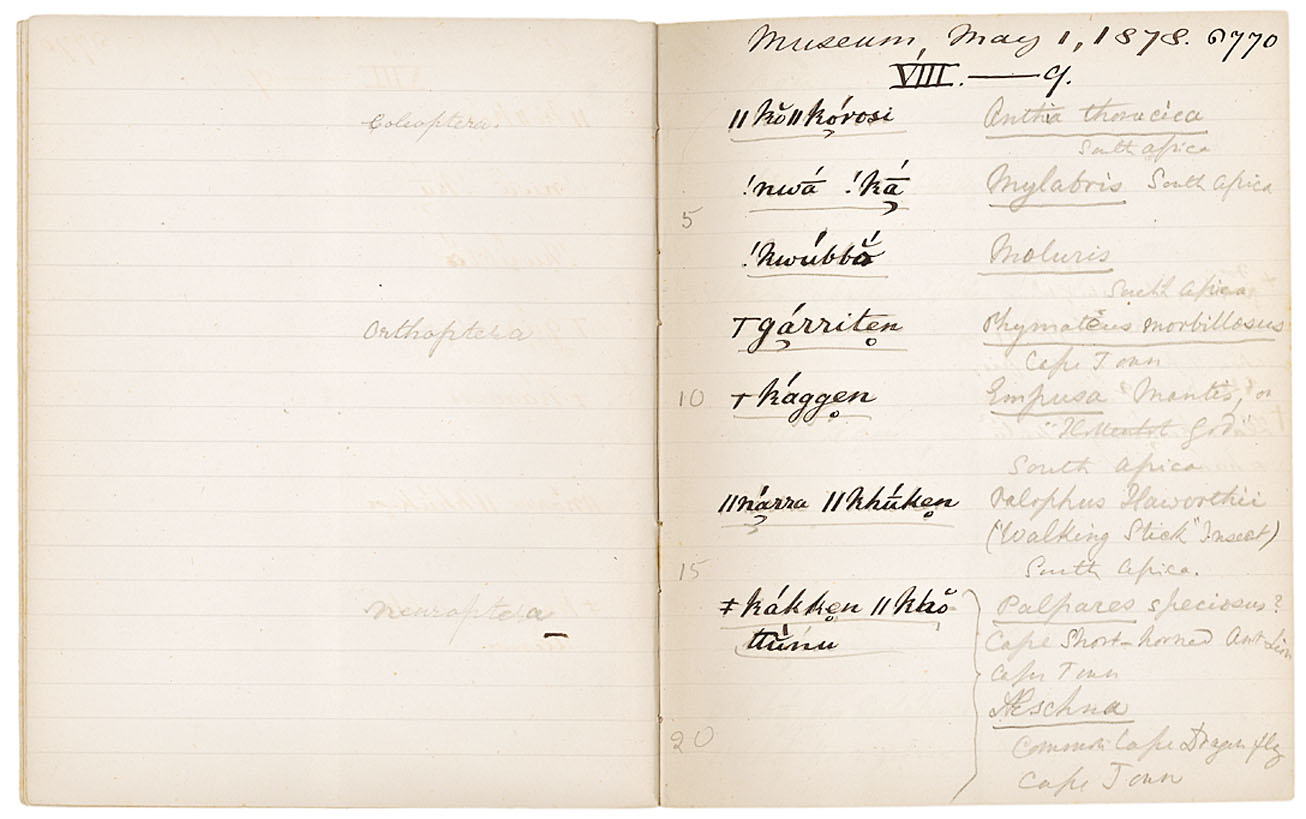 Coleoptera.
Orthoptera
Neuroptera
Museum, May 1, 1878. 6770
VIII. — 9.
ǁkŏǁkórosi Anthia thoracica
South Africa
!nwā́ !kā́ Mylabris South Africa
5
!kwúbbǎ Moluris
South Africa
Ϯgárriten̥ Phymateus morbillosus
Cape Town
10 ϯkággen̥ Empusa Mantis, or
"Hottentot God"
South Africa
ǁnárra ǁkhū́ken̥ Palophus Haworthii
("Walking Stick" Insect)
15 South Africa.
ǂkákken̥ ǁkhŏ Palpares speciosus?
ttū́nu Cape Short-horned Ant-Lion
Cape Town
Æschna
20 Common Cape Dragon fly
Cape Town